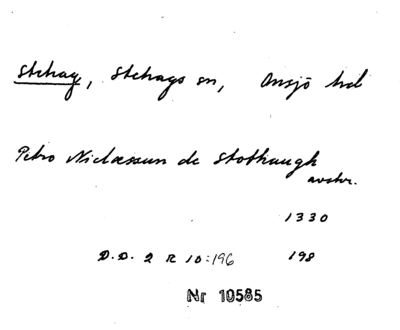 Stehag, Stehags sn, Onsjö hd
Petro Niclæssun de Stothaugh
avskr.
1330
D.D. 2 R 10:196 198
Nr 10585